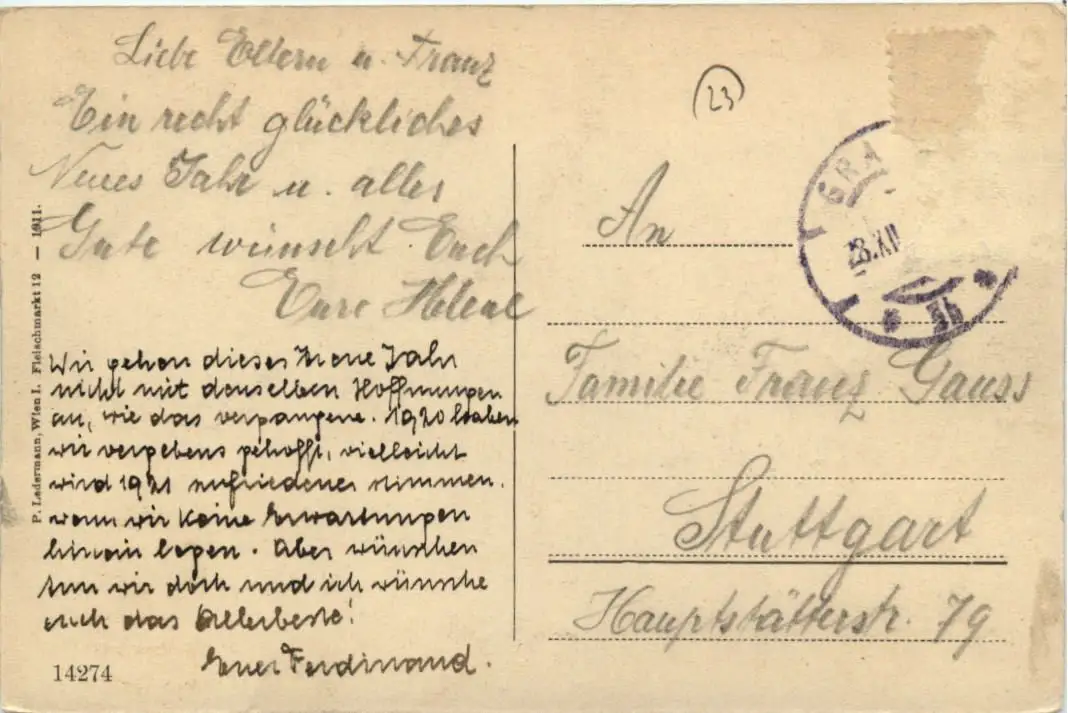 Liebe Eltern u. Franz
Ein recht glückliches
Neues Jahr u. alles
Gute wünscht Euch
Eure
Wir gehen dieses Neue Jahr
nicht mit denselben Hoffnungen
an, wie das vergangene. 1920 haben
wir vergebens gehofft, vielleicht
wird 1921 zufriedener stimmen,
wenn wir keine Erwartungen
hinein legen. Aber wünschen
tun wir doch und ich wünsche
euch das Allerbeste!
Euer Ferdinand.
14274
P. Ledermann, Wien I. Fleischmarkt 12 — 1911.
23
GRA
28.XII
An
Familie Franz Gauss
Stuttgart
Hauptstätterstr. 79